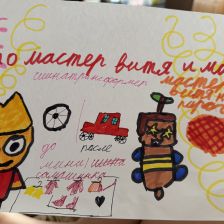 до мастер витя и ма
шинатрансформер
мастер
витя
до после
мини/шина